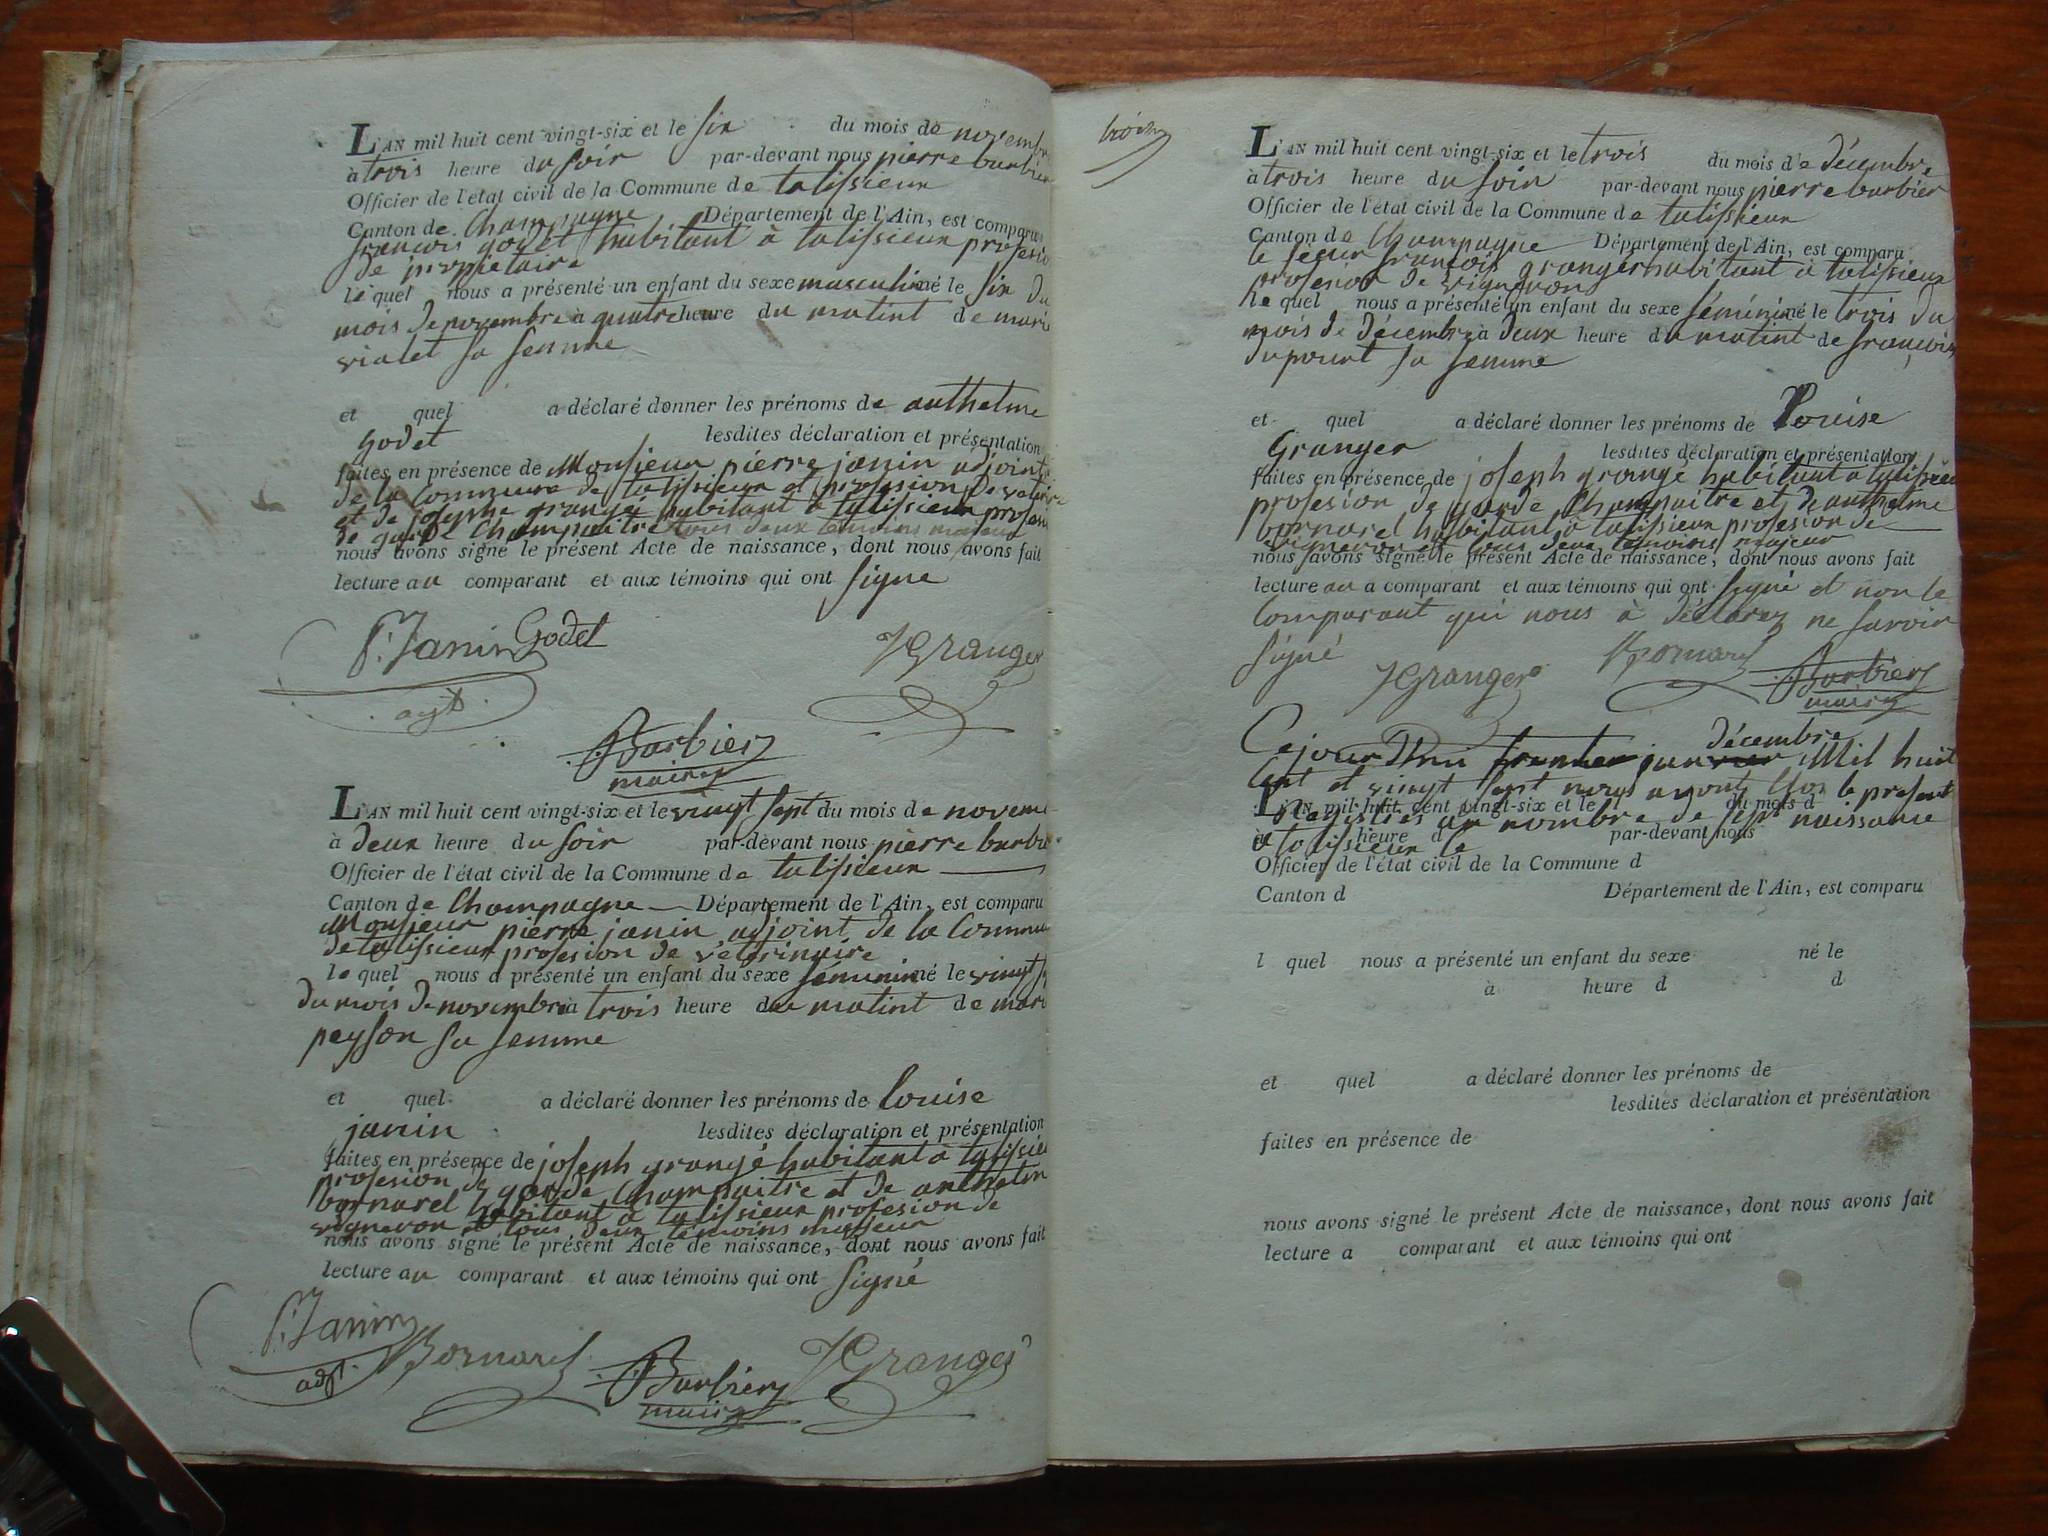 L'AN mil huit cent vingt-six et le six du mois de novembre
à trois heure du soir par-devant nous pierre barbier
Officier de l'état civil de la Commune de talissieux
Canton de Champagne Département de l'Ain, est comparu
francois godet habitant à talissieux profesio
de propietaire
le quel nous a présenté un enfant du sexe masculin né le six du
mois de novembre à quatre heure du matint de mari
violet sa femme
et quel a déclaré donner les prénoms de anthelme
godet lesdites déclaration et présentation
faites en présence de Monsieur pierre janin adjoint
de la Commune de talissieux et profesion de
et de josephe granger habitant à talissieux profesi
de garde Champaitre tous deux temoins majeur
nous avons signé le présent Acte de naissance, dont nous avons fait
lecture au comparant et aux témoins qui ont signe
P. Janin Godet JGranger
adjt
Barbier
maire
L'AN mil huit cent vingt-six et le vingt sept du mois de novem
à deux heure du soir par-devant nous pierre barbie
Officier de l'état civil de la Commune de talissieux
Canton de Champagne Département de l'Ain, est comparu
Monsieur pierre janin adjoint de la Commu
de talissieux profesion de véterinaire
le quel nous a présenté un enfant du sexe féminin né le vingt
du mois de novembre à trois heure du matint de mari
peysson sa femme
et quel a déclaré donner les prénoms de louise
janin lesdites déclaration et présentation
faites en présence de joseph grangé habitant à talissie
profesion de garde Champaitre et de anthelm
bornarel habitant à talissieux profesion de
vigneron et tous deux témoins majeur
nous avons signé le présent Acte de naissance, dont nous avons fait
lecture au comparant et aux témoins qui ont signé
P. Janin Bornarel Barbier JGranger
adjt. maire
L'AN mil huit cent vingt-six et le trois du mois de décembre
à trois heure du soir par-devant nous pierre barbier
Officier de l'état civil de la Commune de talissieux
Canton de Champagne Département de l'Ain, est comparu
le sieur francois granger habitant à talissieux
profesion de vigneron
le quel nous a présenté un enfant du sexe féminin né le trois du
mois de décembre à deux heure du matint de francois
dupount sa femme
et quel a déclaré donner les prénoms de Louise
Granger lesdites déclaration et présentation
faites en présence de joseph grangé habitant à talissieu
profesion de garde Champaitre et de anthelme
bornarel habitant à talissieux profesion de
vigneron et tous deux témoins majeur
nous avons signé le présent Acte de naissance, dont nous avons fait
lecture au a comparant et aux témoins qui ont signé et non le
Comparant qui nous à déclarez ne savoir
signé
JGranger Bornarel Barbier
maire
décembre
Cejourdhui janvier Mil huit
Cent et vingt sept nous avons Clos le present
L'AN mil huit cent vingt-six et le du mois d
Registres au nombre de sept naissance
à heure d par-devant nous
a talissieux le
Officier de l'état civil de la Commune d
Canton d Département de l'Ain, est comparu
l quel nous a présenté un enfant du sexe né le
à heure d d
et quel a déclaré donner les prénoms de
lesdites déclaration et présentation
faites en présence de
nous avons signé le présent Acte de naissance, dont nous avons fait
lecture a comparant et aux témoins qui ont